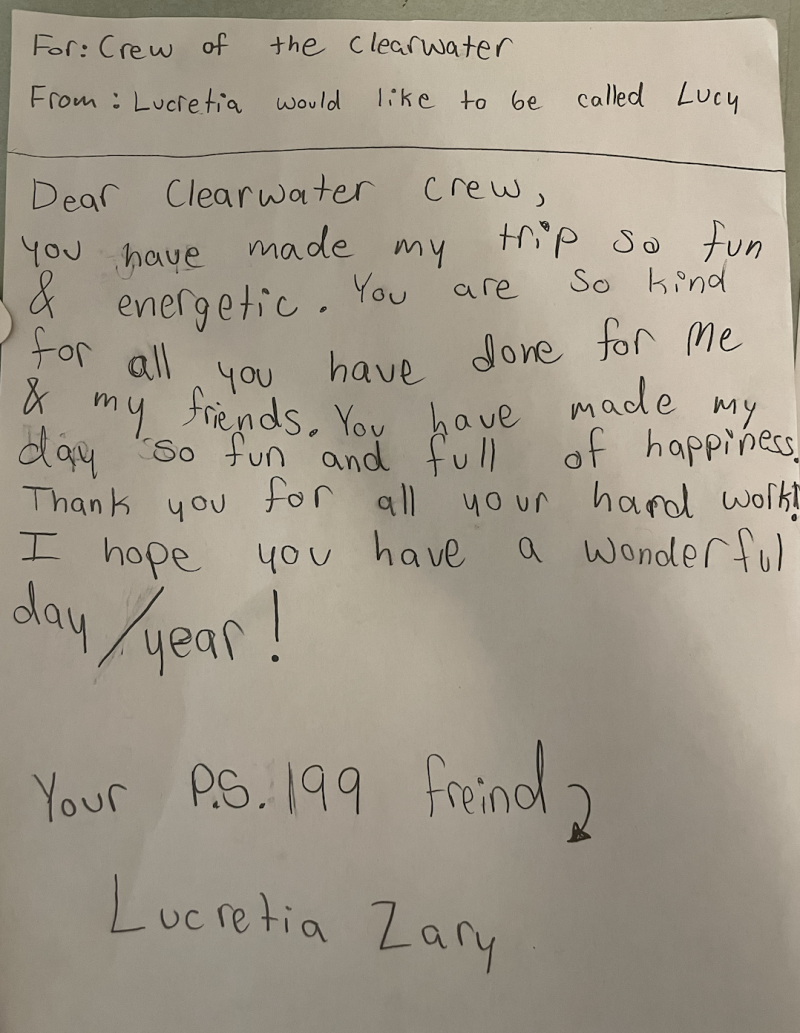 For: Crew of the Clearwater
From: Lucretia would like to be called Lucy
Dear Clearwater crew,
you have made my trip so fun
& energetic. You are so kind
for all you have done for me
& my friends. You have made my
day so fun and full of happiness.
Thank you for all your hard work!
I hope you have a wonderful
day/year!
Your P.S. 199 freind
Lucretia Zary